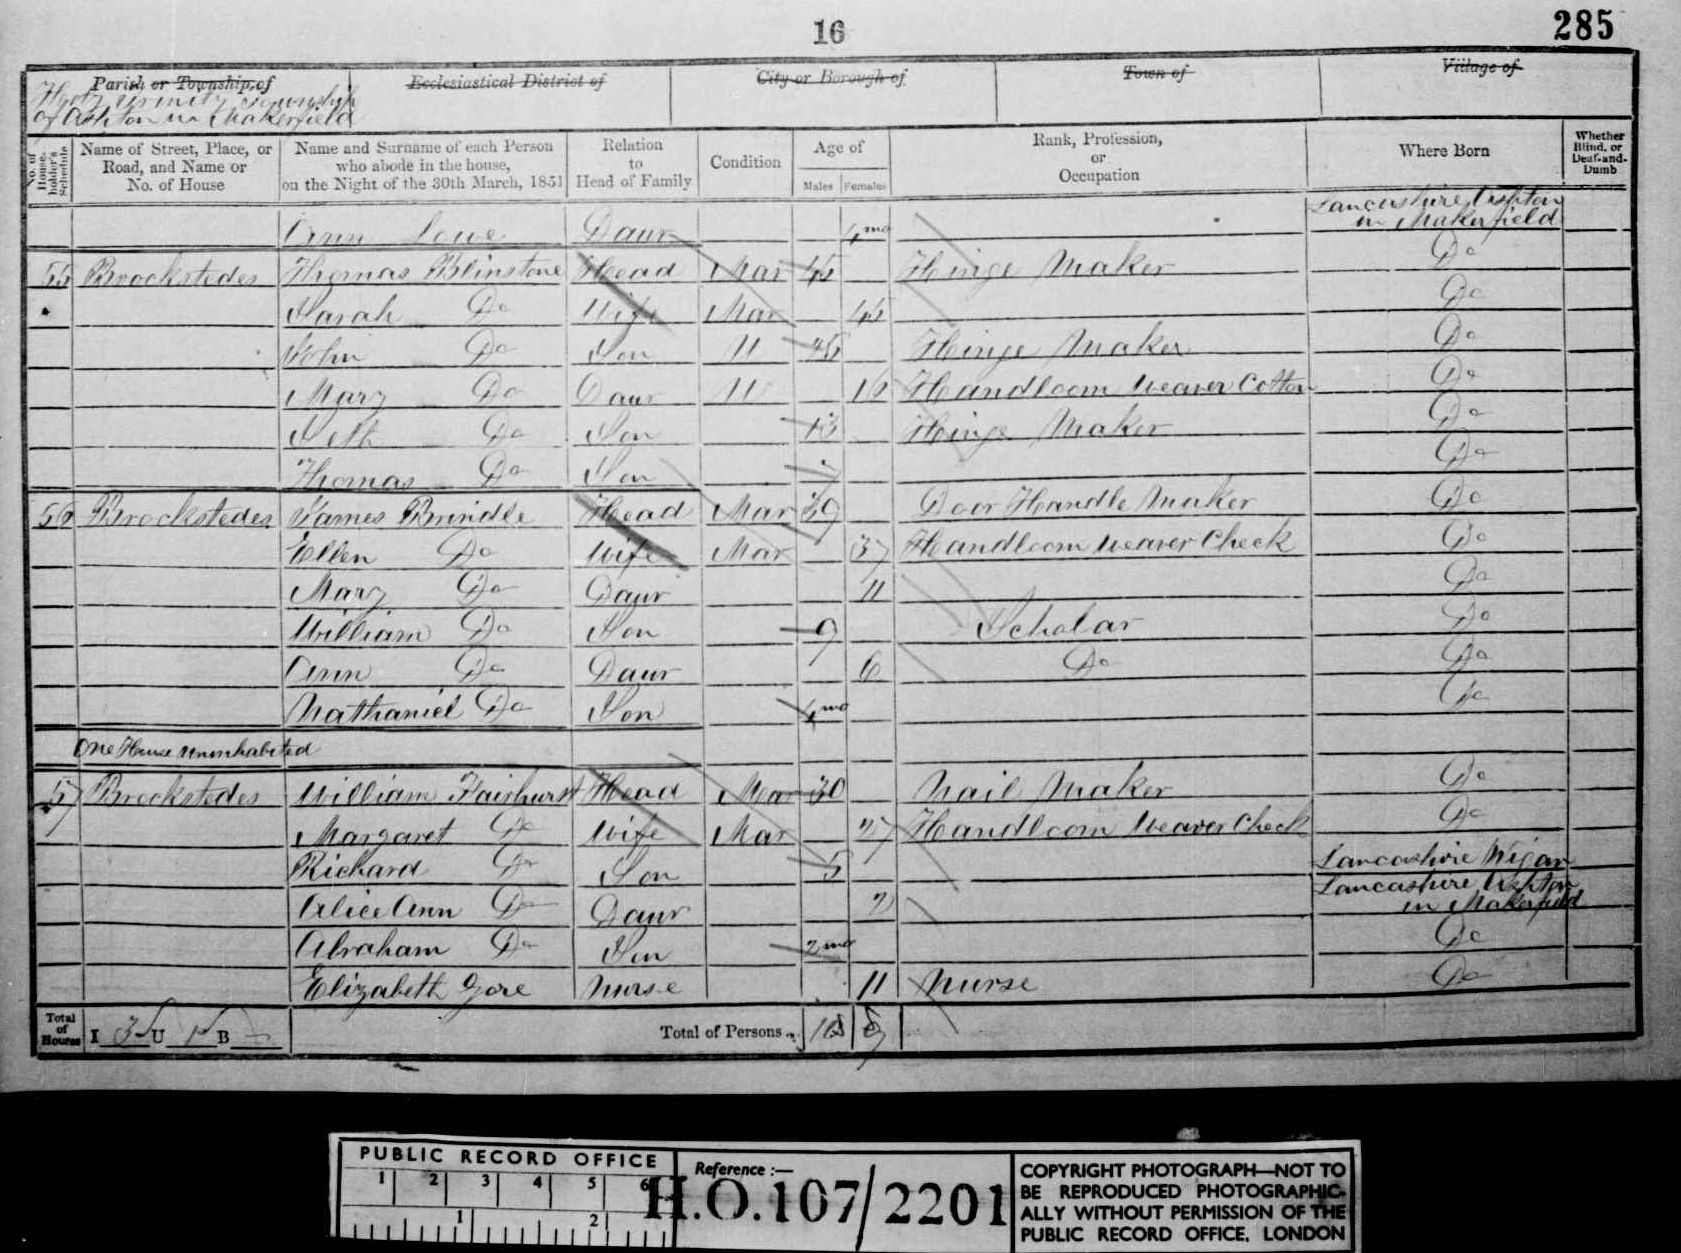 16
285
Parish or Township of
Ecclesiastical District of
City or Borough of
Town of
Village of
Holy Trinity Township
of Ashton in Makerfield
No. of House-holder's Schedule
Name of Street, Place, or Road, and Name or No. of House
Name and Surname of each Person who abode in the house, on the Night of the 30th March, 1851
Relation to Head of Family
Condition
Age of
Males
Females
Rank, Profession, or Occupation
Where Born
Whether Blind, or Deaf-and-Dumb
Ann Lowe Daur 4mo Lancashire Ashton in Makerfield
55 Brockstedes Thomas Blinstone Head Mar 45 Hinge Maker Do
Sarah Do Wife Mar 45 Do
John Do Son U Hinge Maker Do
Mary Do Daur U 16 Handloom Weaver Cotton Do
Seth Do Son 13 Hinge Maker Do
Thomas Do Son 7 Do
56 Brockstedes James Brindle Head Mar 39 Door Handle Maker Do
Ellen Do Wife Mar 37 Handloom Weaver Check Do
Mary Do Daur 11 Do
William Do Son 9 Scholar Do
Ann Do Daur 6 Do Do
Nathaniel Do Son 4mo Do
One House Uninhabited
57 Brockstedes William Fairhurst Head Mar 30 Nail Maker Do
Margaret Do Wife Mar 27 Handloom Weaver Check Do
Richard Do Son 5 Lancashire Wigan
Alice Ann Do Daur 2 Lancashire Ashton in Makerfield
Abraham Do Son 2mo Do
Elizabeth Gore Nurse 11 Nurse Do
Total of Houses I 3 U 1 B –
Total of Persons
PUBLIC RECORD OFFICE
1 2 3 4 5 6
1 2
Reference :—
H.O.107/2201
COPYRIGHT PHOTOGRAPH—NOT TO
BE REPRODUCED PHOTOGRAPHIC-
ALLY WITHOUT PERMISSION OF THE
PUBLIC RECORD OFFICE, LONDON